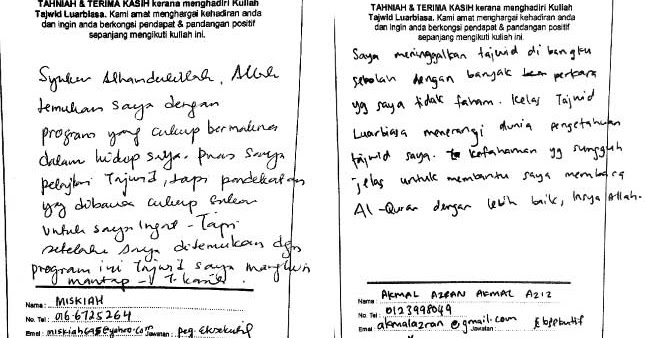 TAHNIAH & TERIMA KASIH kerana menghadiri Kuliah
Tajwid Luarbiasa. Kami amat menghargai kehadiran anda
dan ingin anda berkongsi pendapat & pandangan positif
sepanjang mengikuti kuliah ini.
Syukur Alhamdulillah, Allah
temukan saya dengan
program yang cukup bermakna
dalam hidup saya. Puas saya
pelajari Tajwid, tapi pendekatan
yg dibawa cukup
untuk saya ingat - Tapi
setelah saya ditemukan dgn
program ini Tajwid saya
mantap - T. kasih.
Nama: MISKIAH
No. Tel: 016-6725264
Emel: Jawatan: Peg. Eksekutif
TAHNIAH & TERIMA KASIH kerana menghadiri Kuliah
Tajwid Luarbiasa. Kami amat menghargai kehadiran anda
dan ingin anda berkongsi pendapat & pandangan positif
sepanjang mengikuti kuliah ini.
Saya meninggalkan tajwid di bangku
sekolah dengan banyak perkara
yg saya tidak faham. Kelas Tajwid
Luarbiasa menerangi dunia pengetahuan
tajwid saya. kefahaman yg sungguh
jelas untuk membantu saya membaca
Al-Quran dengan lebih baik, Insya Allah.
Nama: AKMAL AZRAN AKMAL AZIZ
No. Tel: 0123998049
Emel: akmalazran@gmail.com Jawatan: